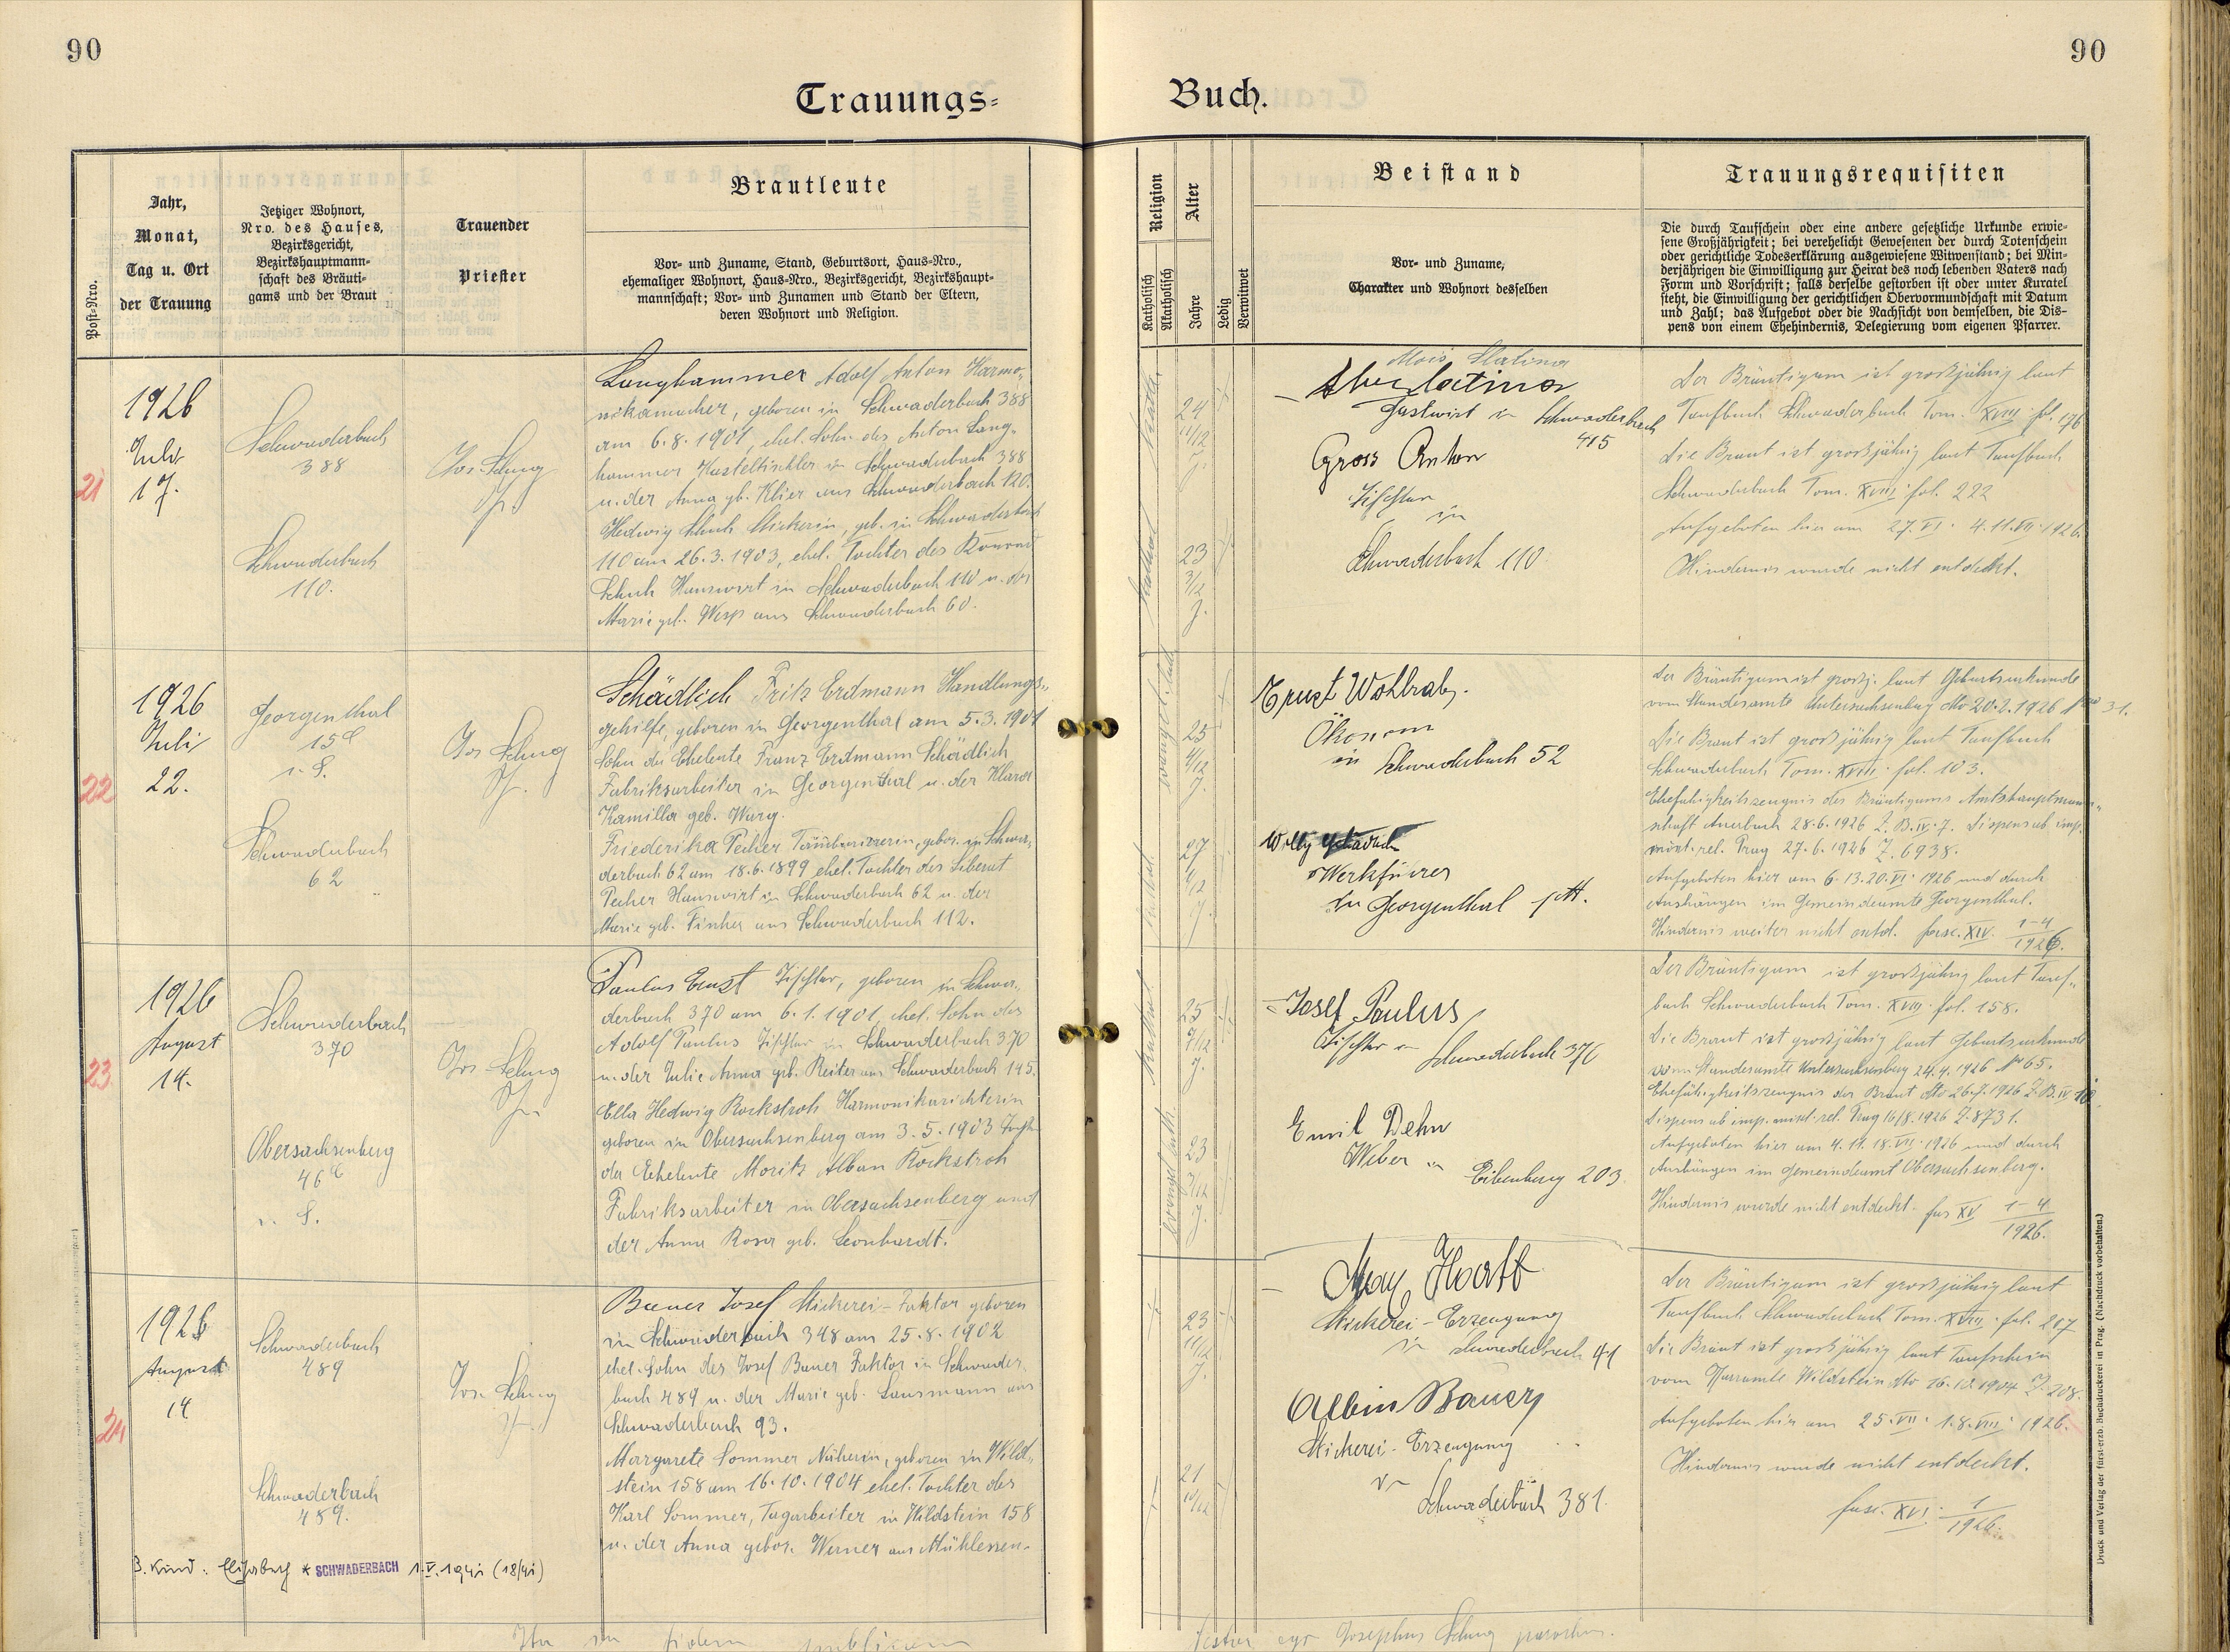 90
90
Trauungs-
Buch.
Post-Nro.
Jahr,
Monat,
Tag u. Ort
der Trauung
Jetziger Wohnort,
Nro. des Hauses,
Bezirksgericht,
Bezirkshauptmann-
schaft des Bräuti-
gams und der Braut
Trauender
Priester
Brautleute
Vor- und Zuname, Stand, Geburtsort, Haus-Nro.,
ehemaliger Wohnort, Haus-Nro., Bezirksgericht, Bezirkshaupt-
mannschaft; Vor- und Zunamen und Stand der Eltern,
deren Wohnort und Religion.
Religion
Katholisch
Akatholisch
Alter
Jahre
Ledig
Verwitwet
Beistand
Vor- und Zuname,
Charakter und Wohnort desselben
Trauungsrequisiten
Die durch Taufschein oder eine andere gesetzliche Urkunde erwie-
sene Großjährigkeit; bei verehelicht Gewesenen der durch Totenschein
oder gerichtliche Todeserklärung ausgewiesene Witwenstand; bei Min-
derjährigen die Einwilligung zur Heirat des noch lebenden Vaters nach
Form und Vorschrift; falls derselbe gestorben ist oder unter Kuratel
steht, die Einwilligung der gerichtlichen Obervormundschaft mit Datum
und Zahl; das Aufgebot oder die Nachsicht von demselben, die Dis-
pens von einem Ehehindernis, Delegierung vom eigenen Pfarrer.
21
1926
Juli
17.
Schwaderbach
388
Schwaderbach
110.
Langhammer Adolf Anton Harmo-
nikamacher, geboren in Schwaderbach 388
am 6.8.1901, ehel. Sohn des Anton Lang-
hammer in Schwaderbach 388
u. der Anna gb. Klier aus Schwaderbach 120.
Hedwig Schuh Stickerin, geb. in Schwaderbach
110 am 26.3.1903, ehel. Tochter des Konrad
Schuh Hauswirt in Schwaderbach 110 u. der
Marie geb. Wesp aus Schwaderbach 60.
24
11/12
J.
23
3/12
J.
Alois Slatina
Gastwirt in Schwaderbach
415
Gross Anton
Tischler
in
Schwaderbach 110.
Der Bräutigam ist grossjährig laut
Taufbuch Schwaderbach Tom. XVIII fol. 176
Die Braut ist grossjährig laut Taufbuch
Schwaderbach Tom. XVIII fol. 222
Aufgeboten hier am 27.VI. 4.11.VII.1926.
Hindernis wurde nicht entdeckt.
22
1926
Juli
22.
Georgenthal
15
i. S.
Schwaderbach
62
Schädlich Fritz Erdmann Handlungs-
gehilfe, geboren in Georgenthal am 5.3.1901
Sohn der Eheleute Franz Erdmann Schädlich
Fabriksarbeiter in Georgenthal u. der Klara
Kamilla geb. Warg.
Friederika Pecher Tambouriererin, gebor. in Schwa-
derbach 62 am 18.6.1899 ehel. Tochter des Liberat
Pecher Hauswirt in Schwaderbach 62 u. der
Marie geb. aus Schwaderbach 112.
25
4/12
J.
27
J.
Ernst Wohlrab.
Ökonom
in Schwaderbach 52
Willy
Werkführer
in Georgenthal
Der Bräutigam ist grossj. laut Geburtsurkunde
vom Standesamte Untersachsenberg dto 20.2.1926 31.
Die Braut ist grossjährig laut Taufbuch
Schwaderbach Tom. XVIII fol. 103.
Ehefähigkeitszeugnis des Bräutigams Amtshauptmann-
schaft Auerbach 28.6.1926 Z. B.IV.7. Dispens ab imp.
mixt. rel. Prag 27.6.1926 Z. 6938.
Aufgeboten hier am 6.13.20.VI.1926 und durch
Aushängen im Gemeindeamte Georgenthal.
Hindernis weiter nicht entd. fasc. XIV. 1-4
1926.
23
1926
August
14.
Schwaderbach
370
Obersachsenberg
46
i. S.
Paulus Ernst Tischler, geboren in Schwa-
derbach 370 am 6.1.1901, ehel. Sohn des
Adolf Paulus Tischler in Schwaderbach 370
u. der Julie Anna geb. Reiter aus Schwaderbach 145.
Ella Hedwig Rockstroh Harmonikarichterin
geboren in Obersachsenberg am 3.5.1903
der Eheleute Moritz Alban Rockstroh
Fabriksarbeiter in Obersachsenberg und
der Anna Rosa geb. Leonhardt.
25
7/12
J.
23
3/12
J.
Josef Paulus
Tischler in
Schwaderbach 370
Emil Dehn
Weber in
Eibenberg 203.
Der Bräutigam ist grossjährig laut Tauf-
buch Schwaderbach Tom. XVIII fol. 158.
Die Braut ist grossjährig laut Geburtsurkunde
vom Standesamte Untersachsenberg 24.4.1926 No 65.
Ehefähigkeitszeugnis der Braut dto 26.7.1926 Z. B.IV 10
Dispens ab imp. mixt. rel. Prag 16/8.1926 Z. 8731.
Aufgeboten hier am 4.11.18.VII.1926 und durch
Aushängen im Gemeindeamt Obersachsenberg.
Hindernis wurde nicht entdeckt. fas XV 1-4
1926.
24
1926
August
14
Schwaderbach
489
Schwaderbach
489.
Bauer Josef Stickerei-Faktor geboren
in Schwaderbach 348 am 25.8.1902
ehel. Sohn des Josef Bauer Faktor in Schwader-
bach 489 u. der Marie geb. aus
Schwaderbach 93.
Margarete Sommer Näherin, geboren in Wild-
stein 158 am 16.10.1904 ehel. Tochter des
Karl Sommer, Tagarbeiter in Wildstein 158
u. der Anna gebor. Werner aus Mühlessen.
23
11/12
J.
21
10/12
Stickerei-Erzeugung
in Schwaderbach 41
Albin Bauer
Stickerei-Erzeugung
in
Schwaderbach 381.
Der Bräutigam ist grossjährig laut
Taufbuch Schwaderbach Tom. XVIII fol. 217
Die Braut ist grossjährig laut Taufschein
vom Pfarramte Wildstein dto 16.10.1904 Z. 208.
Aufgeboten hier am 25.VII. 1.8.VIII. 1926.
Hindernis wurde nicht entdeckt.
fasc. XVI. 1
1926.
3. Kind: Elisabeth * SCHWADERBACH 1.V.1941 (18/41)
Ita in fidem publicam
testor ego Josephus parochus.
Druck und Verlag der fürst-erzb. Buchdruckerei in Prag. (Nachdruck vorbehalten.)